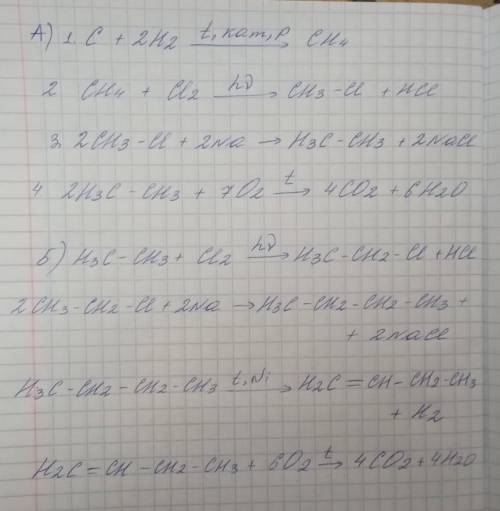 А) 1. C + 2H2 t, кат, P → CH4
2 CH4 + Cl2 hν → CH3-Cl + HCl
3. 2CH3-Cl + 2Na → H3C-CH3 + 2NaCl
4 2H3C-CH3 + 7O2 t → 4CO2 + 6H2O
Б) H3C-CH3 + Cl2 hν → H3C-CH2-Cl + HCl
2CH3-CH2-Cl + 2Na → H3C-CH2-CH2-CH3 +
+ 2NaCl
H3C-CH2-CH2-CH3 t, Ni → H2C=CH-CH2-CH3
+ H2
H2C=CH-CH2-CH3 + 6O2 t → 4CO2 + 4H2O